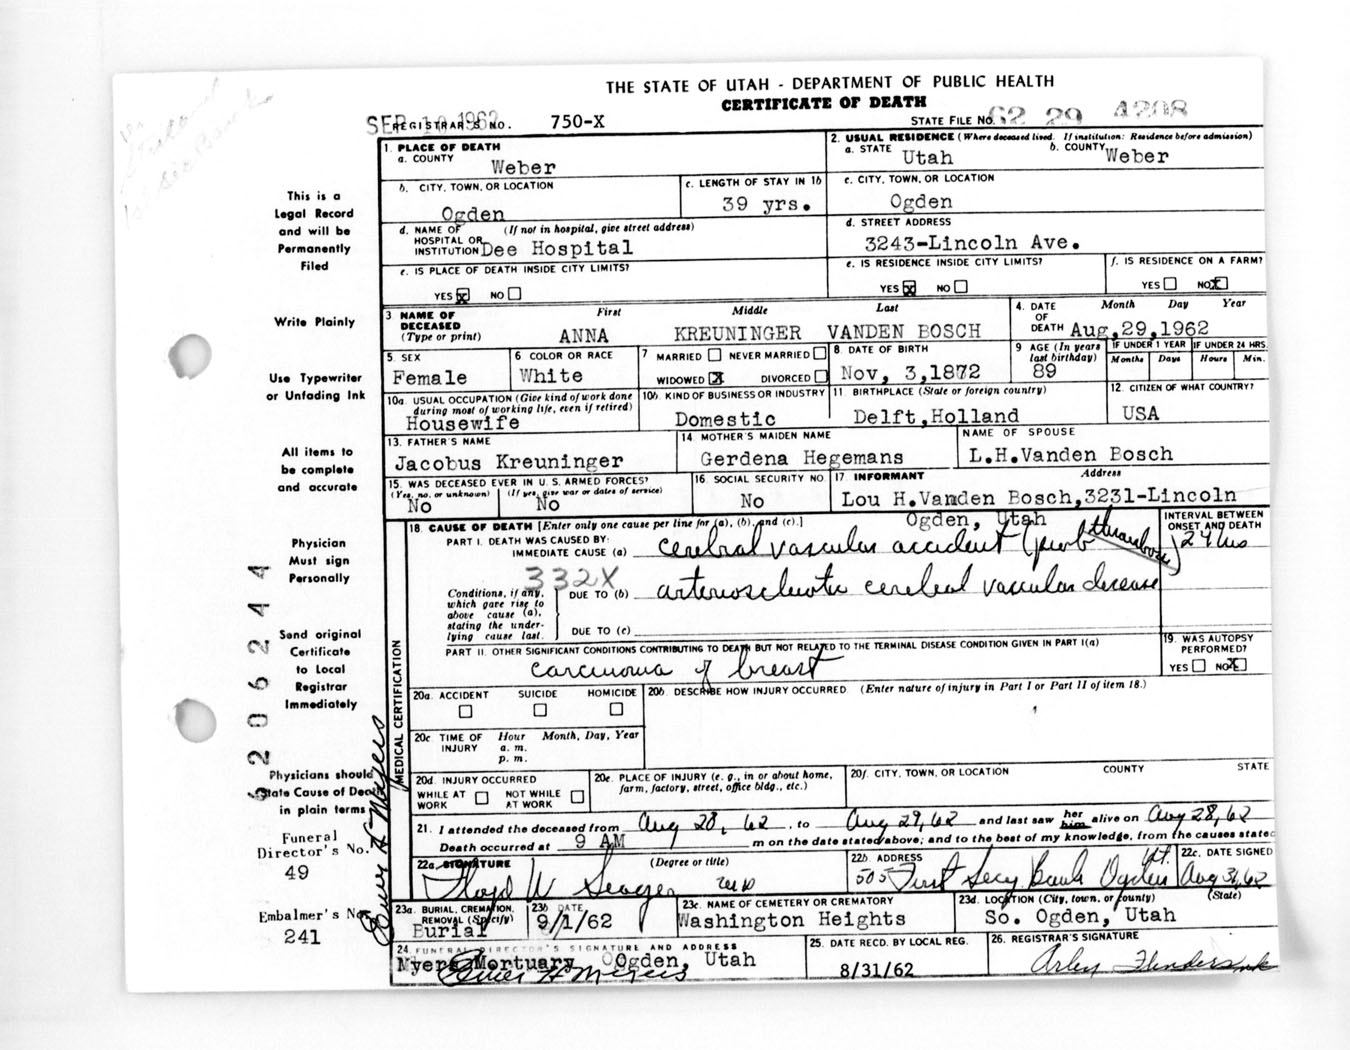 THE STATE OF UTAH - DEPARTMENT OF PUBLIC HEALTH
CERTIFICATE OF DEATH
SEP 10 1962
REGISTRAR'S NO. 750-X
STATE FILE NO. 62 29 4208
This is a
Legal Record
and will be
Permanently
Filed
Write Plainly
Use Typewriter
or Unfading Ink
All items to
be complete
and accurate
Physician
Must sign
Personally
Send original
Certificate
to Local
Registrar
Immediately
Physicians should
State Cause of Death
in plain terms
Funeral
Director's No.
49
Embalmer's No.
241
Elmer H Myers
MEDICAL CERTIFICATION
1. PLACE OF DEATH
a. COUNTY Weber
2. USUAL RESIDENCE (Where deceased lived. If institution: Residence before admission)
a. STATE Utah b. COUNTY Weber
b. CITY, TOWN, OR LOCATION Ogden
c. LENGTH OF STAY IN 1b 39 yrs.
c. CITY, TOWN, OR LOCATION Ogden
d. NAME OF HOSPITAL OR INSTITUTION (If not in hospital, give street address) Dee Hospital
d. STREET ADDRESS 3243-Lincoln Ave.
e. IS PLACE OF DEATH INSIDE CITY LIMITS?
YES X NO
e. IS RESIDENCE INSIDE CITY LIMITS?
YES X NO
f. IS RESIDENCE ON A FARM?
YES NO X
3 NAME OF DECEASED (Type or print)
First Middle Last
ANNA KREUNINGER VANDEN BOSCH
4. DATE OF DEATH Month Day Year
Aug,29,1962
5. SEX Female
6 COLOR OR RACE White
7 MARRIED NEVER MARRIED
WIDOWED X DIVORCED
8. DATE OF BIRTH Nov, 3,1872
9 AGE (In years last birthday) 89
IF UNDER 1 YEAR Months Days
IF UNDER 24 HRS. Hours Min.
10a. USUAL OCCUPATION (Give kind of work done during most of working life, even if retired) Housewife
10b. KIND OF BUSINESS OR INDUSTRY Domestic
11. BIRTHPLACE (State or foreign country) Delft,Holland
12. CITIZEN OF WHAT COUNTRY? USA
13. FATHER'S NAME Jacobus Kreuninger
14. MOTHER'S MAIDEN NAME Gerdena Hegemans
NAME OF SPOUSE L.H.Vanden Bosch
15. WAS DECEASED EVER IN U. S. ARMED FORCES?
(Yes, no, or unknown) No (If yes, give war or dates of service) No
16. SOCIAL SECURITY NO. No
17 INFORMANT Address
Lou H.Vanden Bosch,3231-Lincoln
Ogden, Utah
18. CAUSE OF DEATH [Enter only one cause per line for (a), (b), and (c).]
INTERVAL BETWEEN ONSET AND DEATH
PART I. DEATH WAS CAUSED BY:
IMMEDIATE CAUSE (a) cerebral vascular accident (prob thrombosis) 24 hrs
332X
Conditions, if any, which gave rise to above cause (a), stating the underlying cause last.
DUE TO (b) arteriosclerotic cerebral vascular disease
DUE TO (c)
PART II. OTHER SIGNIFICANT CONDITIONS CONTRIBUTING TO DEATH BUT NOT RELATED TO THE TERMINAL DISEASE CONDITION GIVEN IN PART I(a)
carcinoma of breast
19. WAS AUTOPSY PERFORMED?
YES NO X
20a. ACCIDENT SUICIDE HOMICIDE
20b. DESCRIBE HOW INJURY OCCURRED. (Enter nature of injury in Part I or Part II of item 18.)
20c TIME OF INJURY Hour Month, Day, Year
a. m.
p. m.
20d. INJURY OCCURRED
WHILE AT WORK NOT WHILE AT WORK
20e. PLACE OF INJURY (e. g., in or about home, farm, factory, street, office bldg., etc.)
20f. CITY, TOWN, OR LOCATION COUNTY STATE
21. I attended the deceased from Aug 28, 62, to Aug 29, 62 and last saw her him alive on Aug 28, 62
Death occurred at 9 AM m on the date stated above; and to the best of my knowledge, from the causes stated
22a. SIGNATURE (Degree or title)
Floyd W Seager MD
22b. ADDRESS
505 First Secy Bank Ogden Ut.
22c. DATE SIGNED
Aug 31, 62
23a. BURIAL, CREMATION, REMOVAL (Specify) Burial
23b DATE 9/1/62
23c. NAME OF CEMETERY OR CREMATORY Washington Heights
23d. LOCATION (City, town, or county) (State)
So. Ogden, Utah
24. FUNERAL DIRECTOR'S SIGNATURE AND ADDRESS
Myers Mortuary Ogden, Utah
Elmer H Myers
25. DATE RECD. BY LOCAL REG. 8/31/62
26. REGISTRAR'S SIGNATURE
62 06244